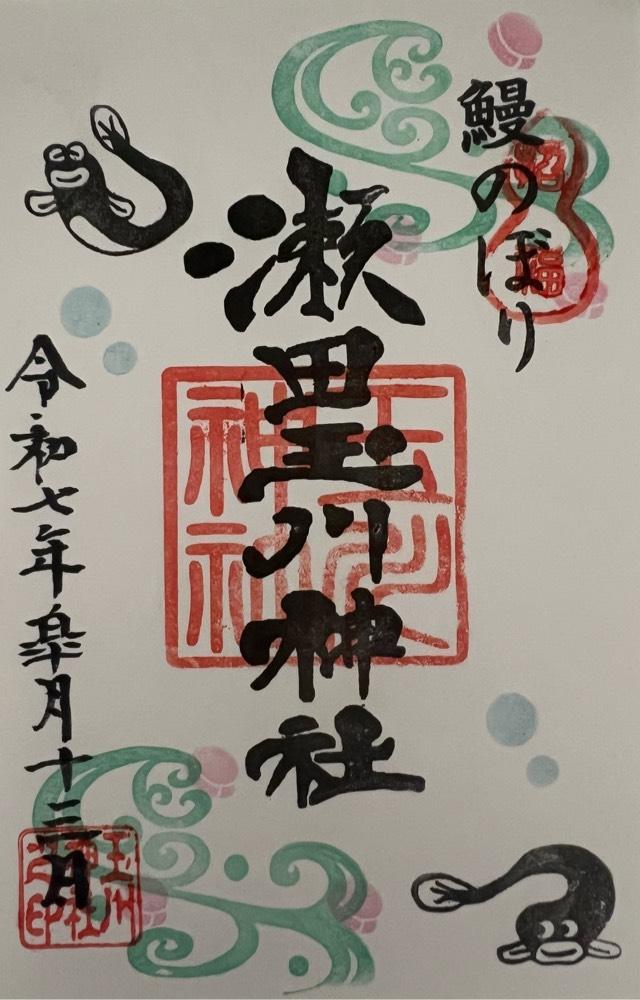 鰻のぼり
招福
瀬田玉川神社
玉川神社
令和七年皐月十三日
玉川神社之印